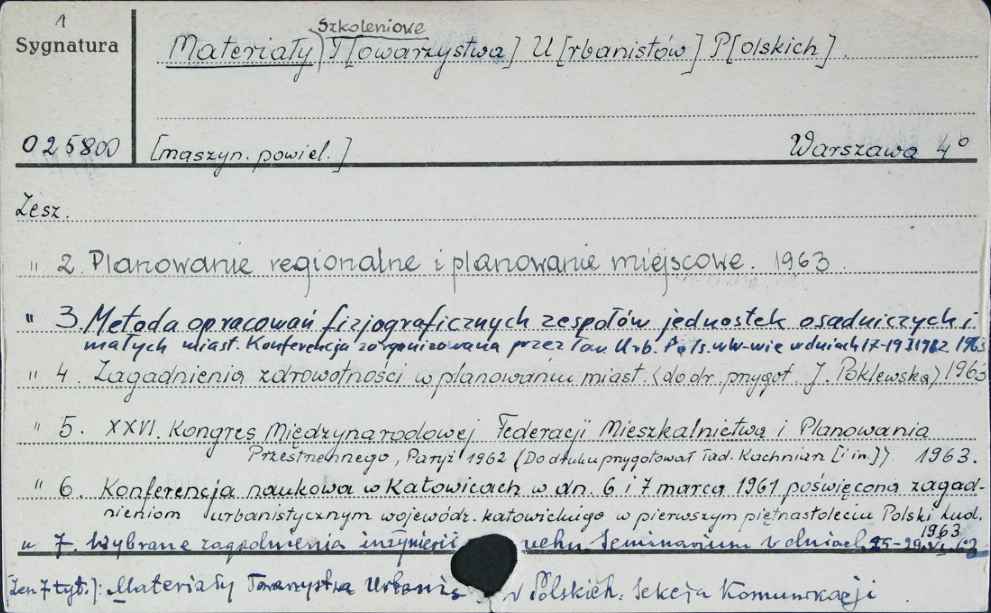 1
Sygnatura
Szkoleniowe
Materiały T[owarzystwa] U[rbanistów] P[olskich].
025800
[maszyn. powiel.]
Warszawa 4°
Zesz.
" 2. Planowanie regionalne i planowanie miejscowe. 1963.
" 3. Metoda opracowań fizjograficznych zespołów jednostek osadniczych i
małych miast. Konferencja zorganizowana przez Tow. Urb. Pols. w W-wie w dniach 17-19 1962 1963
" 4. Zagadnienia zdrowotności w planowaniu miast. (do dr. przygot. J. Poklewska) 1963
" 5. XXVI. Kongres Międzynarodowej Federacji Mieszkalnictwa i Planowania
Przestrzennego, Paryż 1962 (Do druku przygotował Tad. Kachnian [i in.]) 1963.
" 6. Konferencja naukowa w Katowicach w dn. 6 i 7 marca 1961 poświęcona zagad-
nieniom urbanistycznym wojewódz. katowickiego w pierwszym piętnastoleciu Polski Lud.
1963
" 7. Wybrane zagadnienia inżynierii ruchu. Seminarium w dniach 25-29.VI.62
[Zesz. 7 tyt.]: Materiały Towarzystwa Urbanis w Polskich. Sekcja Komunikacji